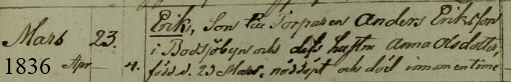 Mars 23. Erik, Son till Torparen Anders Eriksson
i Bodsjöbyn och dess hustru Anna Olsdotter,
1836 Apr 4. född d. 23 Mars, nöddöpt och död innan en time